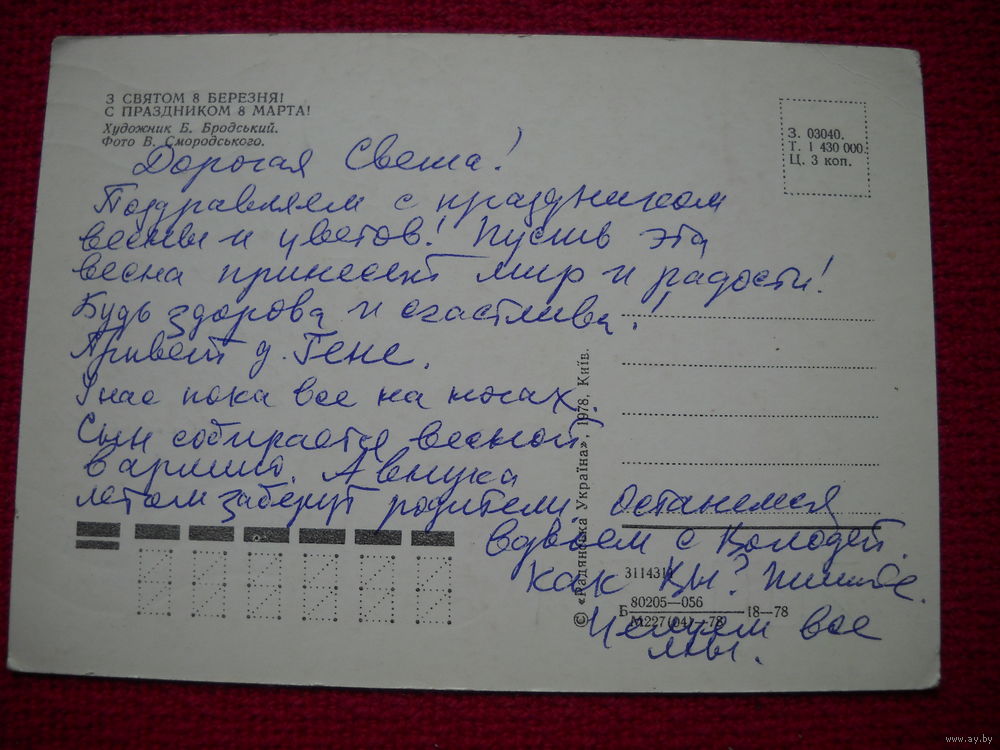 З СВЯТОМ 8 БЕРЕЗНЯ!
С ПРАЗДНИКОМ 8 МАРТА!
Художник Б. Бродський.
Фото В. Смородського.
З. 03040.
Т. 1 430 000.
Ц. 3 коп.
Дорогая Света!
Поздравляем с праздником
весны и цветов! Пусть эта
весна принесет мир и радость!
Будь здорова и счастлива!
Привет д. Гене.
У нас пока все на ногах.
Сын собирается весной
в армию. А внука
летом заберут родители. Останемся
вдвоем с Володей.
Как Вы? Пишите.
Целуем все
мы.
© «Радянська Україна», 1978, Київ.
Б 80205—056 18—78
М227(04)—78
www.ay.by